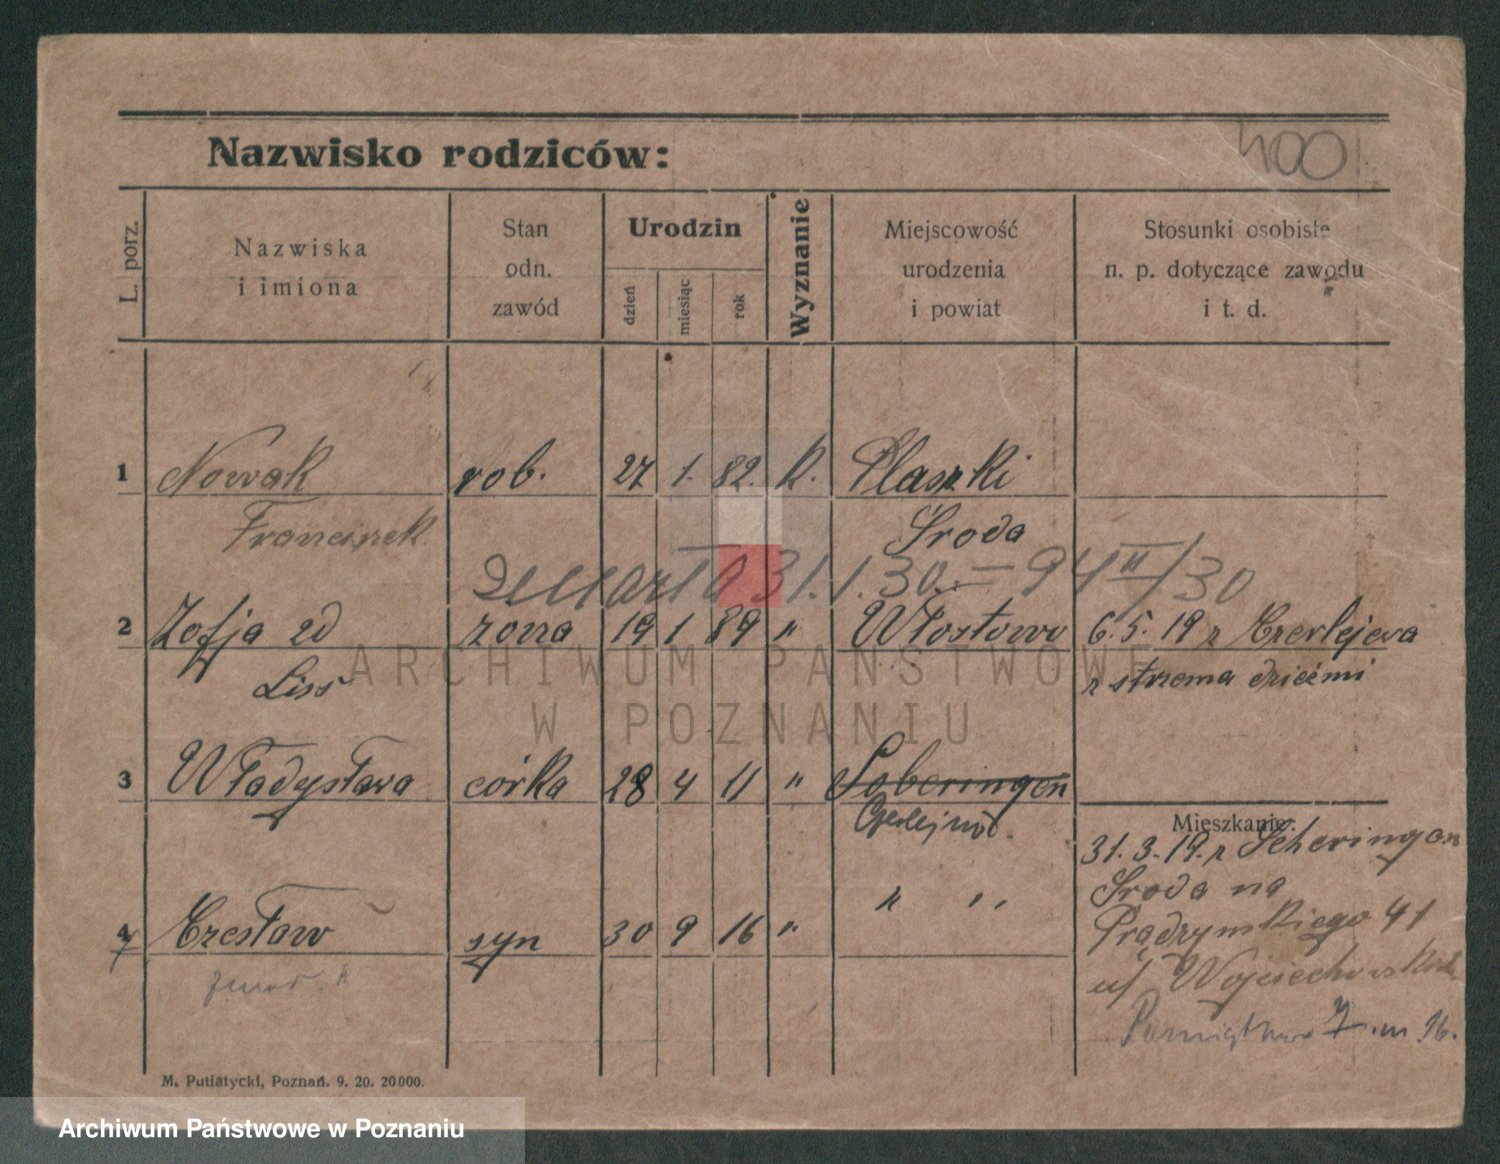 400
Nazwisko rodziców:
L. porz.
Nazwiska
i imiona
Stan
odn.
zawód
Urodzin
dzień
miesiąc
rok
Wyznanie
Miejscowość
urodzenia
i powiat
Stosunki osobiste
n. p. dotyczące zawodu
i t. d.
1 Nowak rob. 27 1. 82. K. Plaszki
Franciszek Środa
31.1.30. = 94 II/30
2 Zofja zd żona 19 1 89 " Włostowo 6. 5. 19 z
Liss z dziećmi
ARCHIWUM PAŃSTWOWE
W POZNANIU
3 Władysława córka 28 4 11 "
Mieszkanie:
31. 3. 19. z Scheringen
Środa na
4 Czesław syn 30 9 16 " " "
41
u/
7. m. 16.
M. Putiatycki, Poznań. 9. 20. 20000.
Archiwum Państwowe w Poznaniu